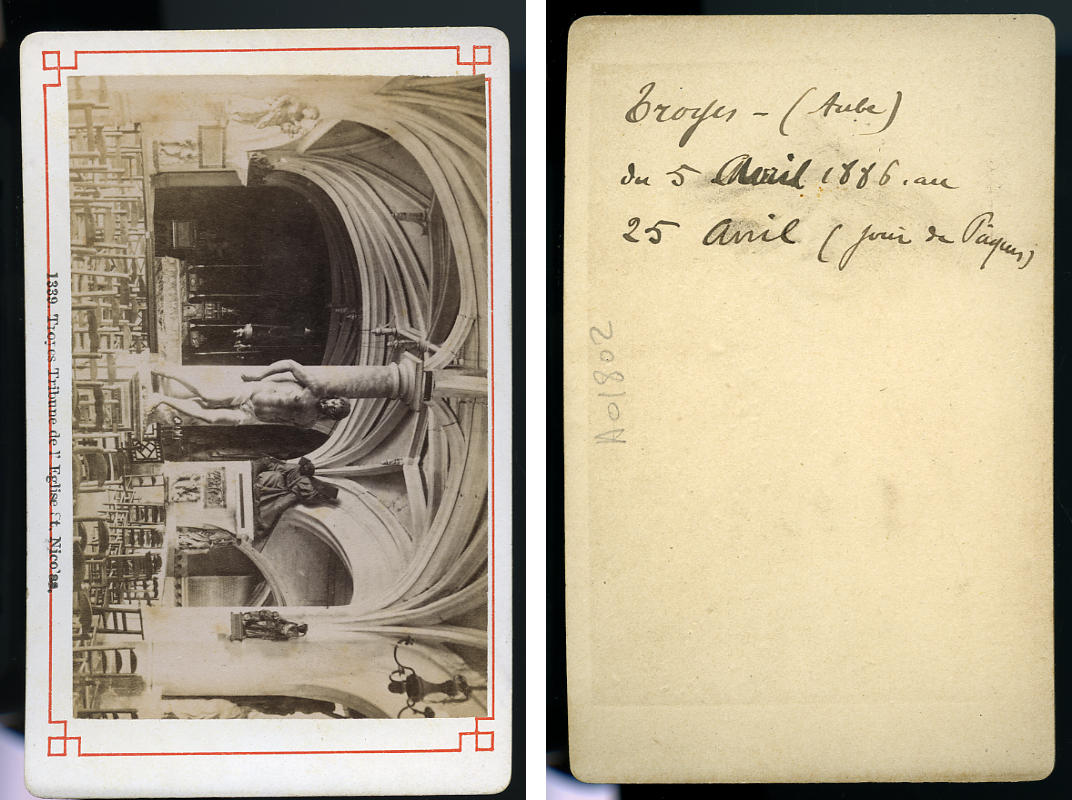 1339 Troyes Tribune de l'Eglise St. Nicolas.
Troyes - (Aube)
du 5 Avril 1886. au
25 Avril (jour de Pâques)
A01802